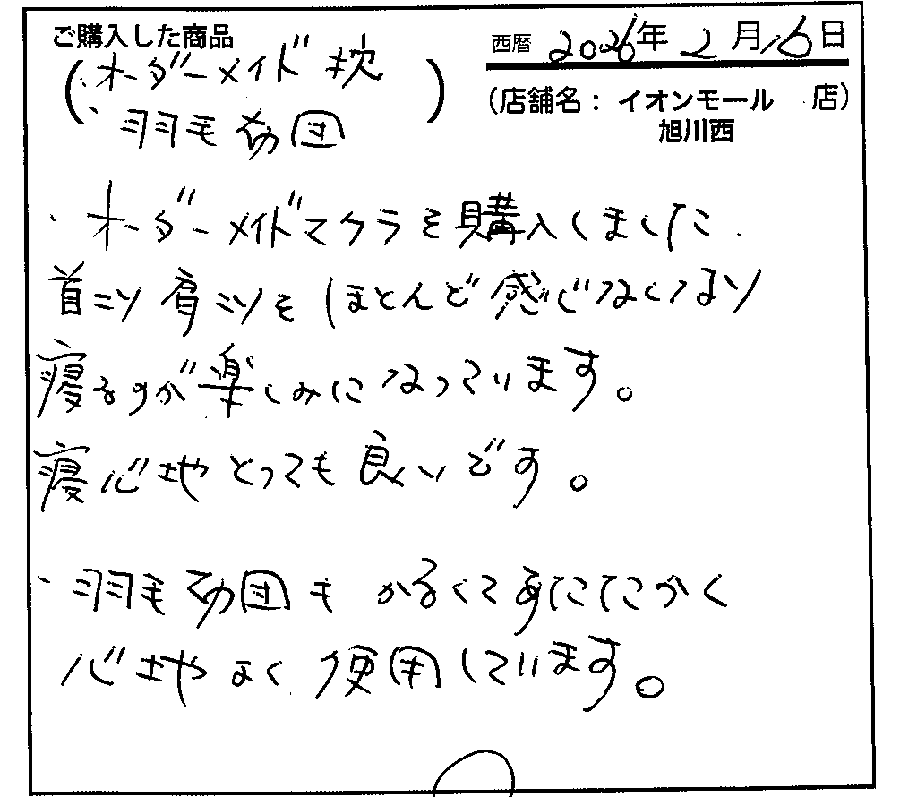 ご購入した商品
西暦 2026年 2月16日
(・オーダーメイド枕
・羽毛布団)
(店舗名：イオンモール 店)
旭川西
・オーダーメイドマクラを購入しました.
首こり肩こりもほとんど感じなくなり
寝るのが楽しみになっています。
寝心地とっても良いです。
・羽毛布団も かるくてあたたかく
心地よく 使用しています。